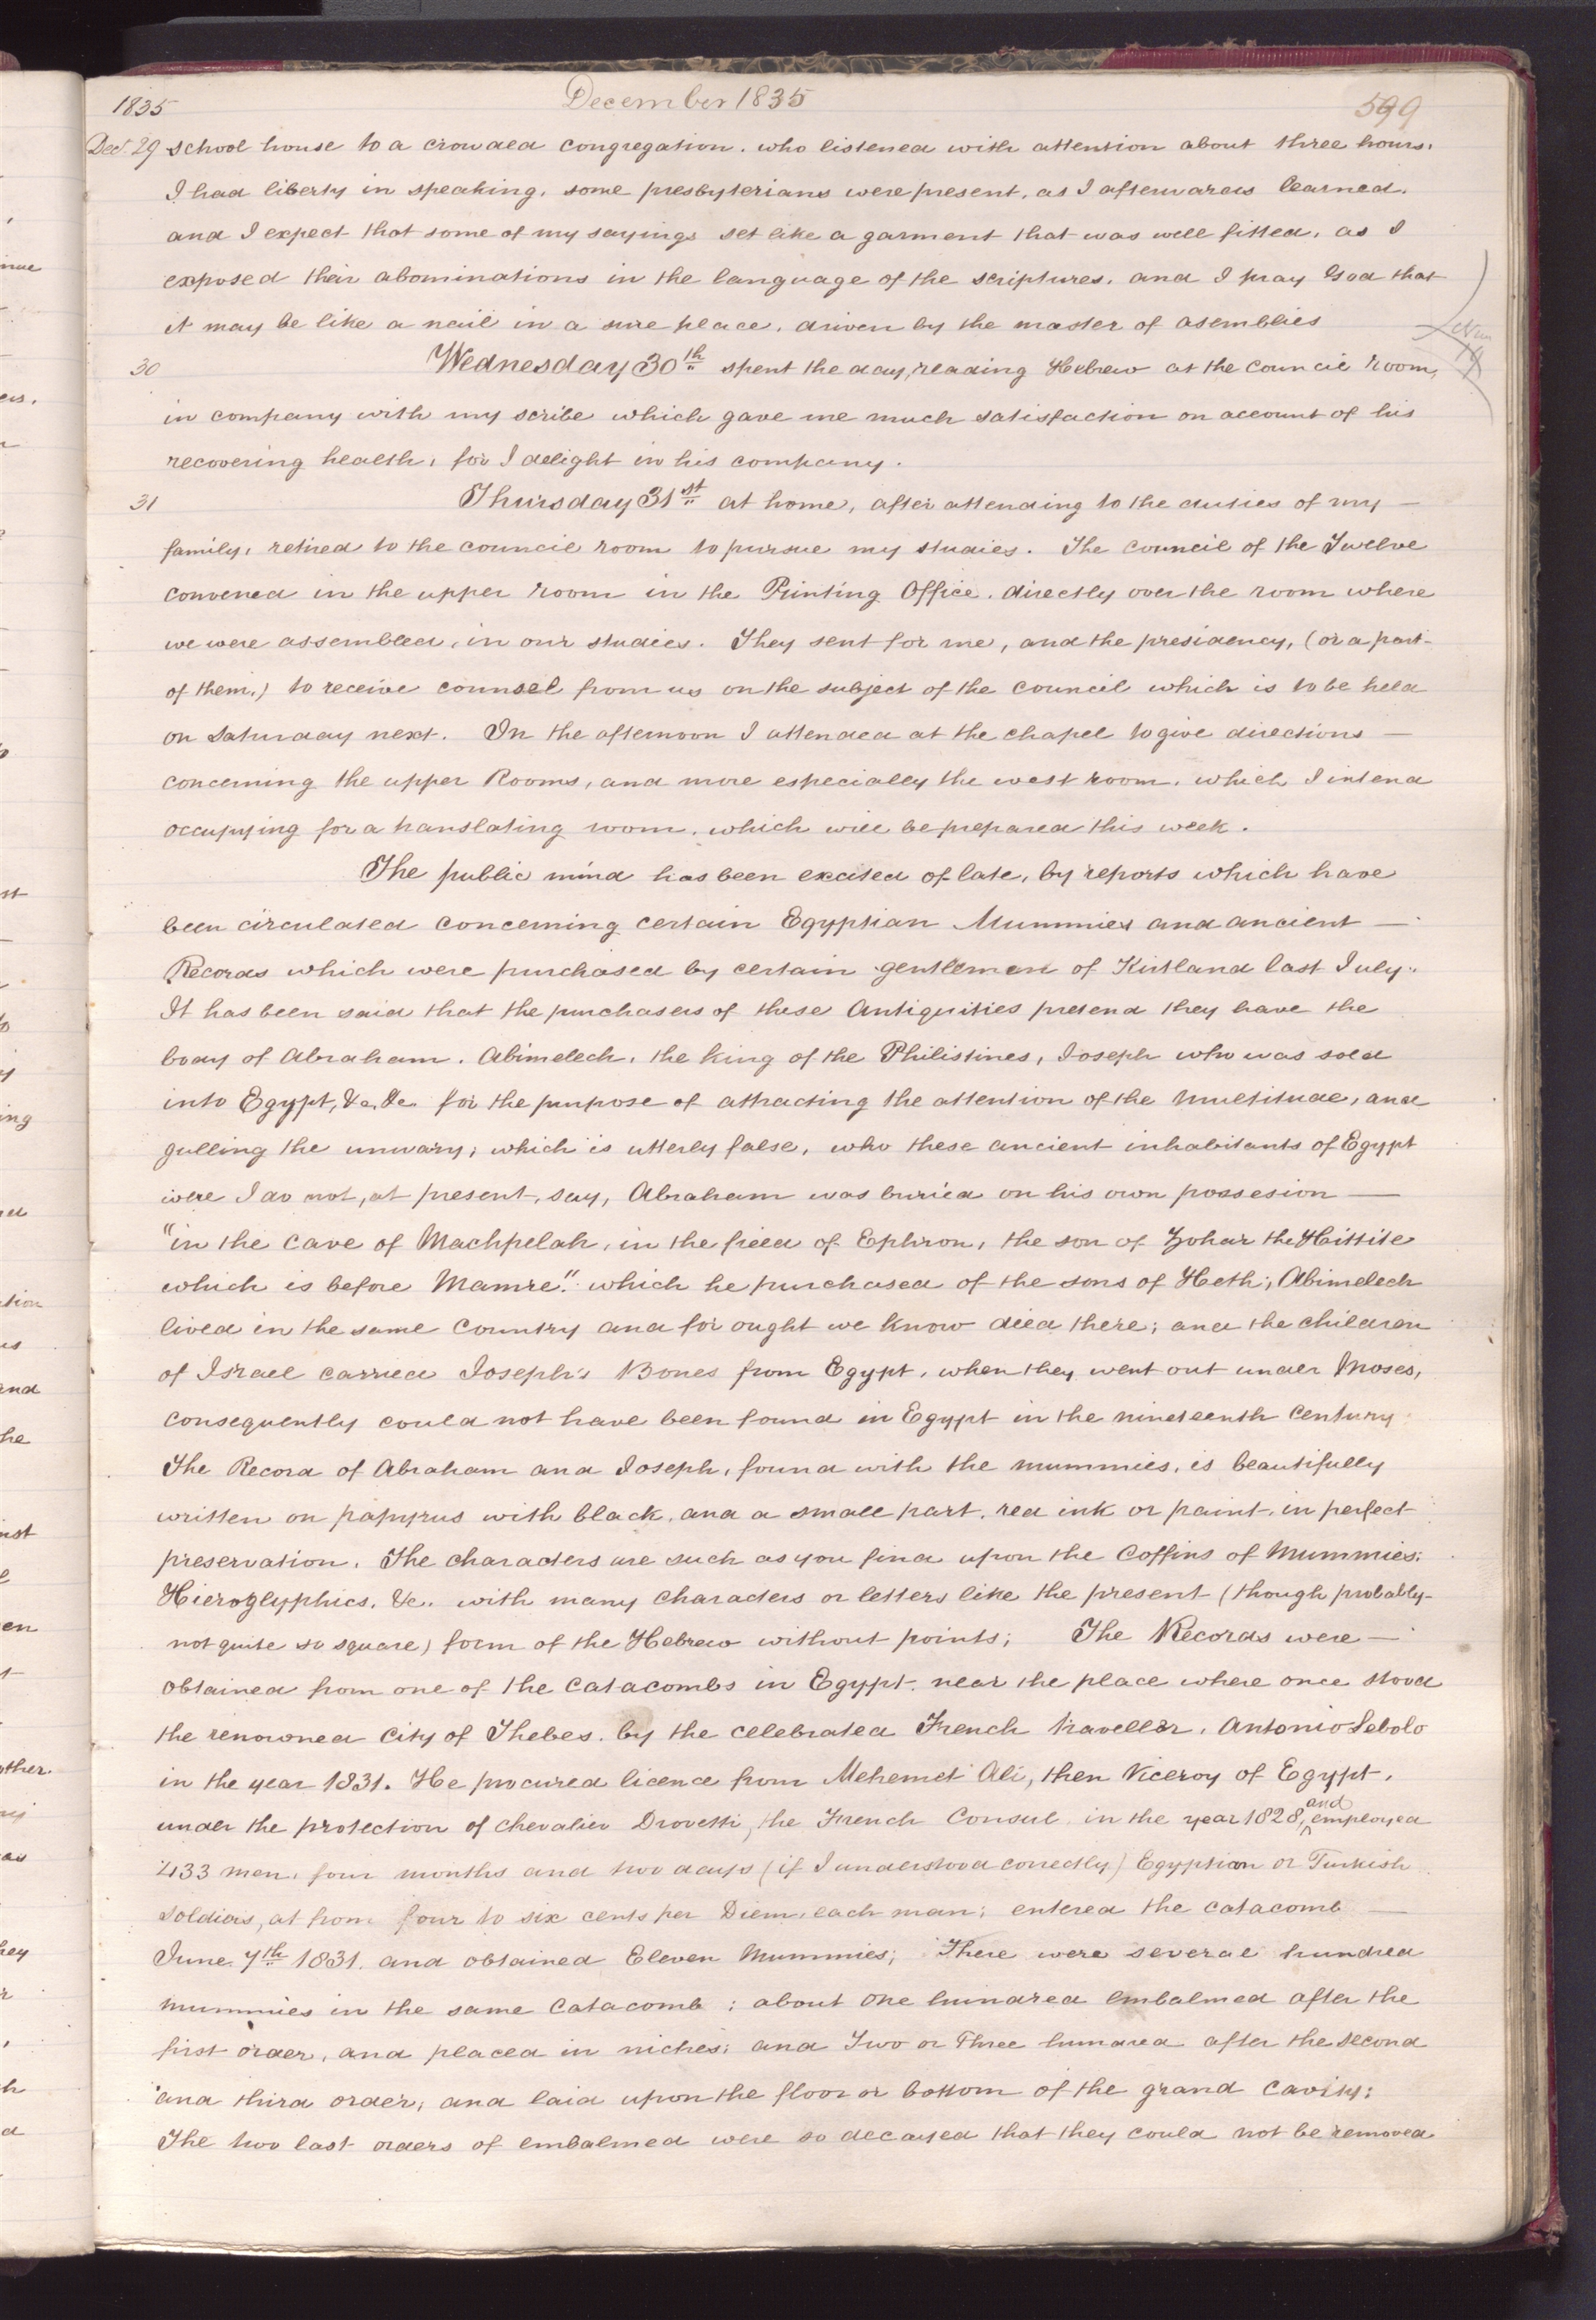 1835 December 1835 599
Dec. 29 school house to a crowded congregation. who listened with attention about three hours.
I had liberty in speaking. some presbyterians were present, as I afterwards learned.
and I expect that some of my sayings set like a garment that was well fitted, as I
exposed their abominations in the language of the scriptures. and I pray God that
it may be like a nail in a sure place, driven by the master of asemblies
30 Wednesday 30th spent the day, reading Hebrew at the council room,
in company with my scribe which gave me much satisfaction on account of his
recovering health, for I delight in his company.
31 Thursday 31st at home, after attending to the duties of my —
family, retired to the council room to pursue my studies. The council of the Twelve
convened in the upper room in the Printing Office, directly over the room where
we were assembled, in our studies. They sent for me, and the presidency, (or a part-
of them,) to receive counsel from us on the subject of the council which is to be held
on Saturday next. In the afternoon I attended at the chapel to give directions —
concerning the upper Rooms, and more especially the west room, which I intend
occupying for a translating room, which will be prepared this week.
The public mind has been excited of late, by reports which have
been circulated concerning certain Egyptian Mummies and ancient —
Records which were purchased by certain gentlemen of Kirtland last July.
It has been said that the purchasers of these Antiquities pretend they have the
body of Abraham. Abimelech, the king of the Philistines, Joseph who was sold
into Egypt, &c, &c for the purpose of attracting the attention of the multitude, and
gulling the unwary; which is utterly false, who these ancient inhabitants of Egypt
were I do not, at present, say, Abraham was buried on his own possesion —
"in the cave of Machpelah, in the field of Ephron, the son of Zohar the Hittite
which is before Mamre" which he purchased of the sons of Heth; Abimelech
lived in the same country and for ought we know died there; and the children
of Israel carried Joseph's Bones from Egypt, when they went out under Moses,
consequently could not have been found in Egypt in the nineteenth century
The Record of Abraham and Joseph, found with the mummies, is beautifully
written on papyrus with black, and a small part, red ink or paint, in perfect
preservation. The characters are such as you find upon the coffins of Mummies;
Hieroglyphics, &c. with many characters or letters like the present (though probably-
not quite so square) form of the Hebrew without points; The Records were —
obtained from one of the catacombs in Egypt, near the place where once stood
the renowned city of Thebes, by the celebrated French traveller, Antonio Sebolo
in the year 1831. He procured licence from Mehemet Ali, then Viceroy of Egypt,
under the protection of Chevalier Drovetti, the French Consul, in the year 1828, and employed
433 men, four months and two days (if I understood correctly) Egyptian or Turkish
soldiers, at from four to six cents per Diem, each man; entered the catacomb —
June 7th 1831, and obtained Eleven Mummies; There were several hundred
mummies in the same catacomb; about one hundred embalmed after the
first order, and placed in niches; and Two or Three hundred after the second
and third order, and laid upon the floor or bottom of the grand cavity;
The two last orders of embalmed were so decayed that they could not be removed